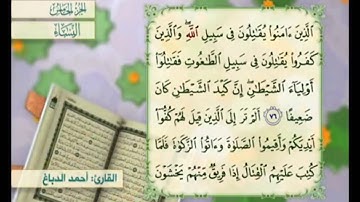 الجزء الخامس
النساء
الَّذِينَ ءَامَنُوا۟ يُقَٰتِلُونَ فِى سَبِيلِ ٱللَّهِ ۖ وَٱلَّذِينَ
كَفَرُوا۟ يُقَٰتِلُونَ فِى سَبِيلِ ٱلطَّٰغُوتِ فَقَٰتِلُوٓا۟
أَوْلِيَآءَ ٱلشَّيْطَٰنِ ۖ إِنَّ كَيْدَ ٱلشَّيْطَٰنِ كَانَ
ضَعِيفًا ٧٦ أَلَمْ تَرَ إِلَى ٱلَّذِينَ قِيلَ لَهُمْ كُفُّوٓا۟
أَيْدِيَكُمْ وَأَقِيمُوا۟ ٱلصَّلَوٰةَ وَءَاتُوا۟ ٱلزَّكَوٰةَ فَلَمَّا
كُتِبَ عَلَيْهِمُ ٱلْقِتَالُ إِذَا فَرِيقٌ مِّنْهُمْ يَخْشَوْنَ
القارئ: أحمد الدباغ